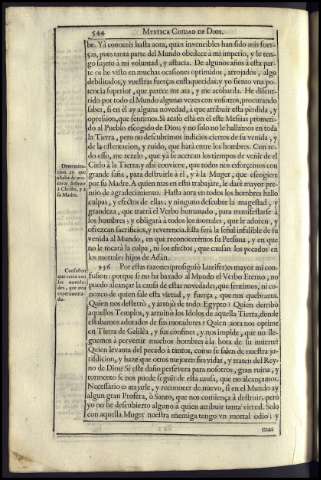 544 MYSTICA CIUDAD DE DIOS.
be. Ya conoceis hasta aora, quan invencibles han sido mis fuer-
ças, pues tanta parte del Mundo obedece à mi imperio, y le ten-
go sujeto à mi voluntad, y astucia. De algunos años à esta par-
te os he visto en muchas ocasiones oprimidos, arrojados, algo
debilitados, y vuestras fuerças enflaquecidas, y yo siento vna po-
tencia superior, que parece me ata, y me acobarda. He discur-
rido por todo el Mundo algunas vezes con vosotros, procurando
saber, si en él ay alguna novedad, à que atribuir esta perdida, y
opresion, que sentimos. Si acaso està en él este Messias prometi-
do al Pueblo escogido de Dios; y no solo no le hallamos en toda
la Tierra, pero no descubrimos indicios ciertos de su venida, y
de la ostentacion, y ruido, que harà entre los hombres. Con to-
do esso, me rezelo, que yà se acercan los tiempos de venir de el
Cielo à la Tierra; y assi conviene, que todos nos esforcemos con
grande saña, para destruirle à él, y à la Muger, que escogiere
por su Madre. A quien mas en esto trabajare, le daré mayor pre-
mio de agradecimiento. Hasta aora en todos los hombres hallo
culpas, y efectos de ellas; y ninguno descubre la magestad, y
grandeza, que traerà el Verbo humanado, para manifestarse à
los hombres; y obligarà à todos los mortales, que le adoren, y
ofrezcan sacrificios, y reverencia. Esta serà la señal infalible de su
venida al Mundo, en que reconoceremos su Persona, y en que
no le tocarà la culpa, ni los efectos, que causan los pecados en
los mortales hijos de Adàn.
à Christo, y à
su Madre.
936 Por estas razones (prosiguiò Lucifer) es mayor mi con-
fusion: porque si no ha baxado al Mundo el Verbo Eterno, no
puedo alcançar la causa de estas novedades, que sentimos, ni co-
nozco de quien sale esta virtud, y fuerça, que nos quebranta.
Quien nos desterrò, y arrojò de todo Egypto? Quien derribò
aquellos Templos, y arruinò los Idolos de aquella Tierra, donde
estabamos adorados de sus moradores? Quien aora nos oprime
en Tierra de Galilèa, y sus confines, y nos impide, que no lle-
guemos à pervertir muchos hombres à la hora de su muerte?
Quien levanta del pecado à tantos, como se salen de nuestra ju-
risdiccion, y haze que otros mejoren sus vidas, y traten del Rey-
no de Dios? Si este daño persevera para nosotros, gran ruina, y
tormento se nos puede seguir de esta causa, que no alcançamos.
Necessario es atajarle, y reconocer de nuevo, si en el Mundo ay
algun gran Profeta, ò Santo, que nos comiença à destruir, pero
yo no he descubierto alguno à quien atribuir tanta virtud. Solo
con aquella Muger nuestra enemiga tengo vn mortal odio; y